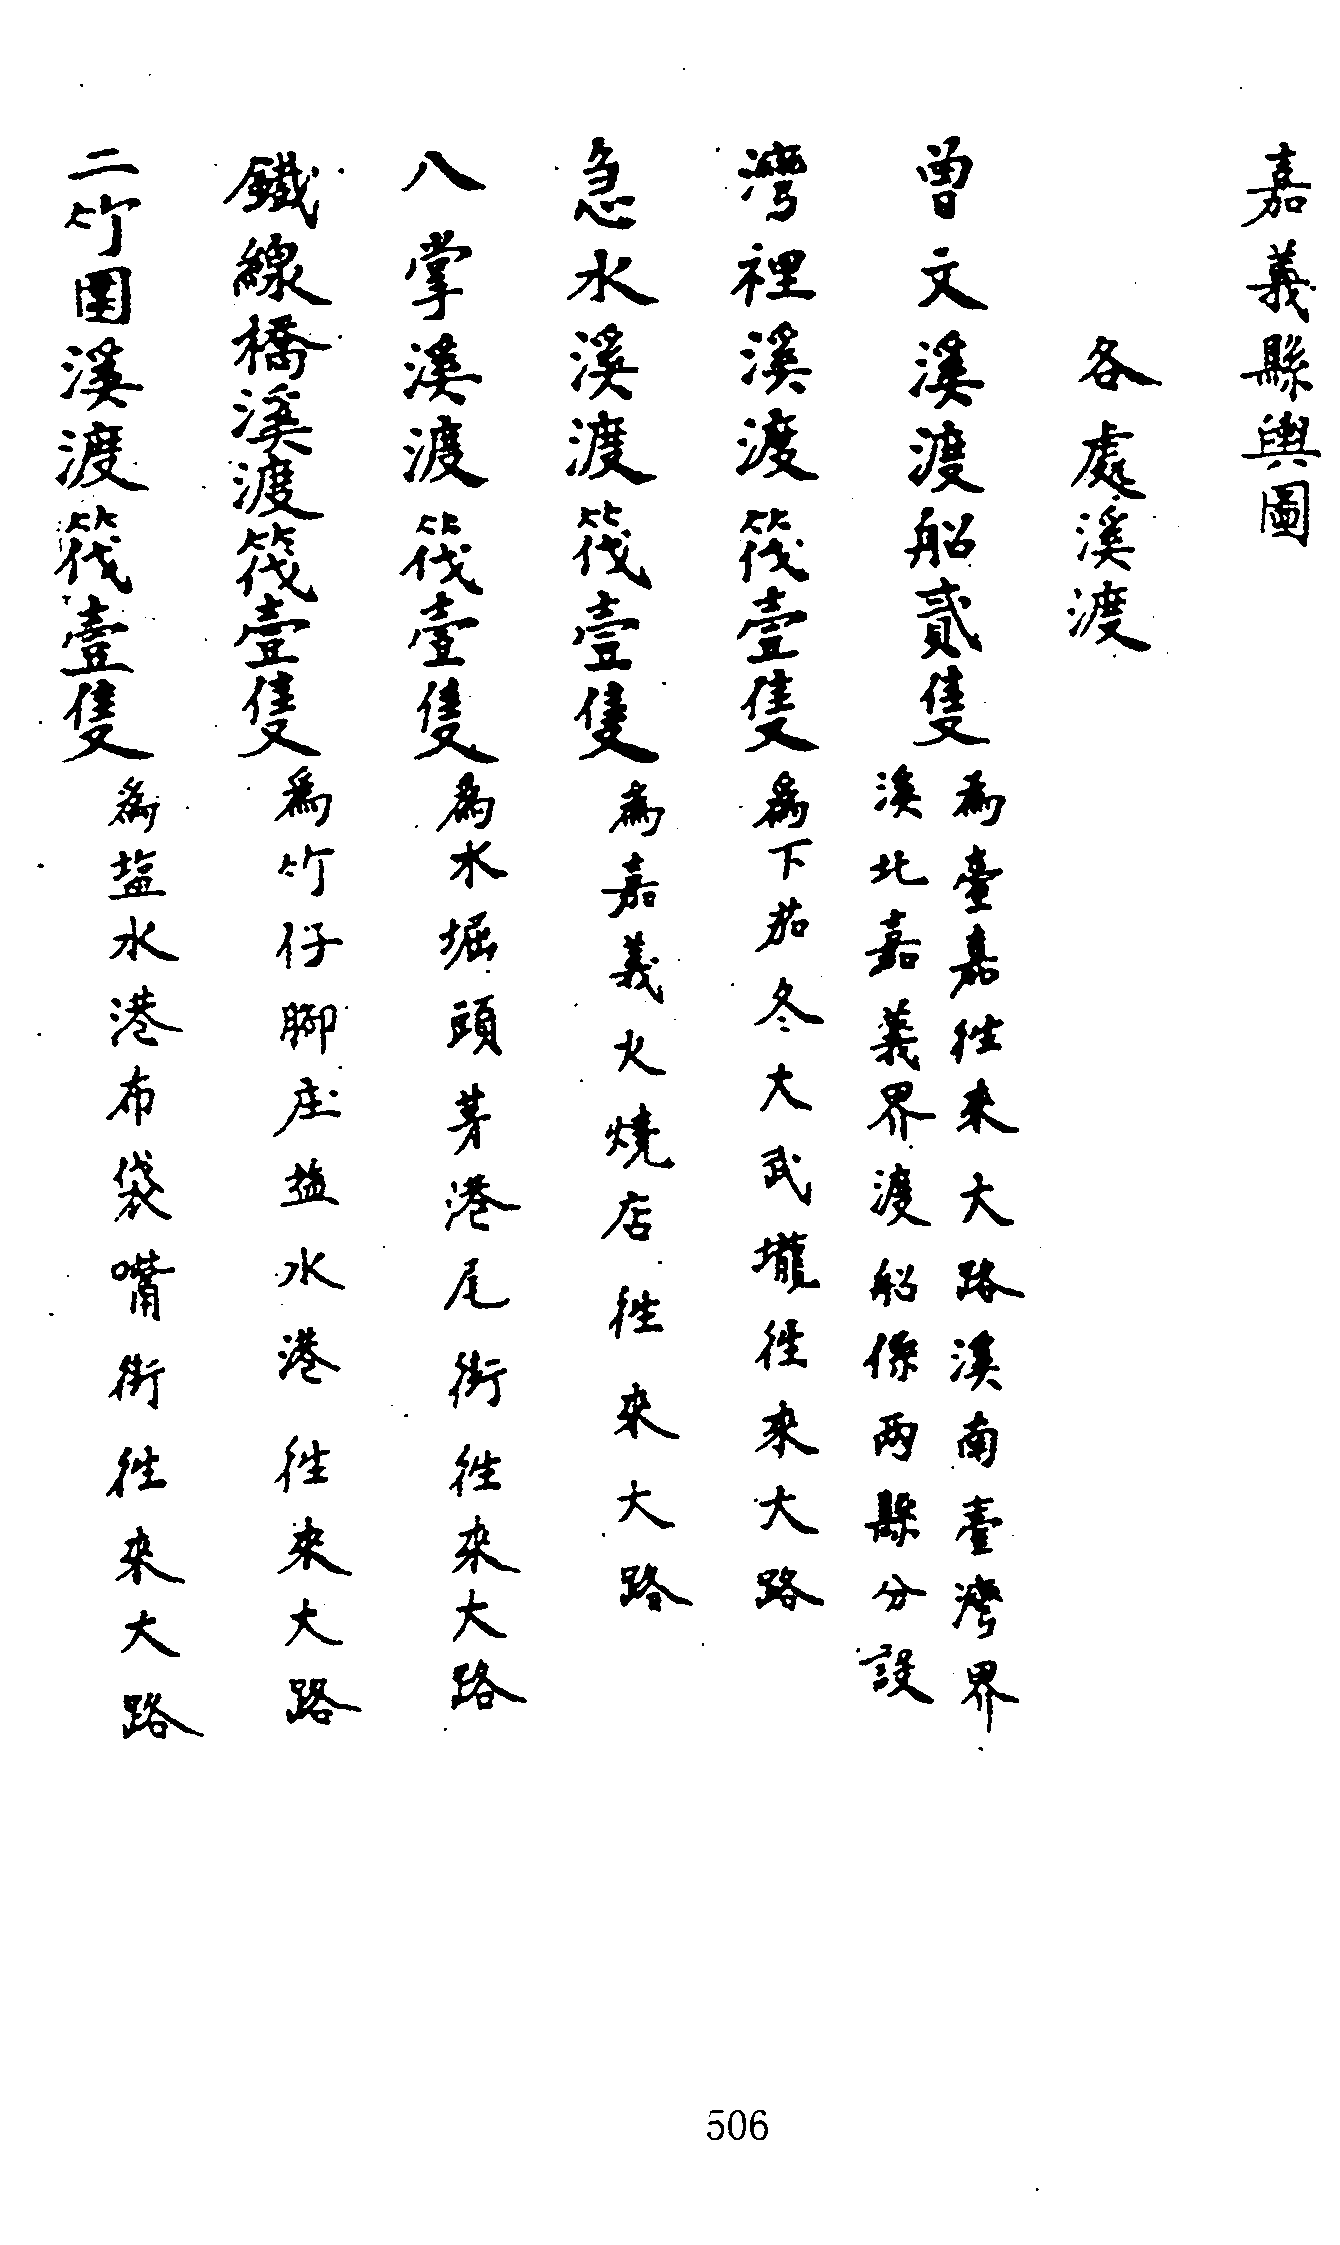 嘉義縣輿圖
各處溪渡
曾文溪渡船貳隻
為臺嘉往來大路溪南臺灣界
溪北嘉義界渡船係兩縣分設
灣裡溪渡筏壹隻為下茄冬大武壠往來大路
急水溪渡筏壹隻為嘉義火燒店往來大路
八掌溪渡筏壹隻為水堀頭茅港尾街往來大路
鐵線橋溪渡筏壹隻為竹仔腳庄塩水港往來大路
二竹圍溪渡筏壹隻為塩水港布袋嘴街往來大路
506